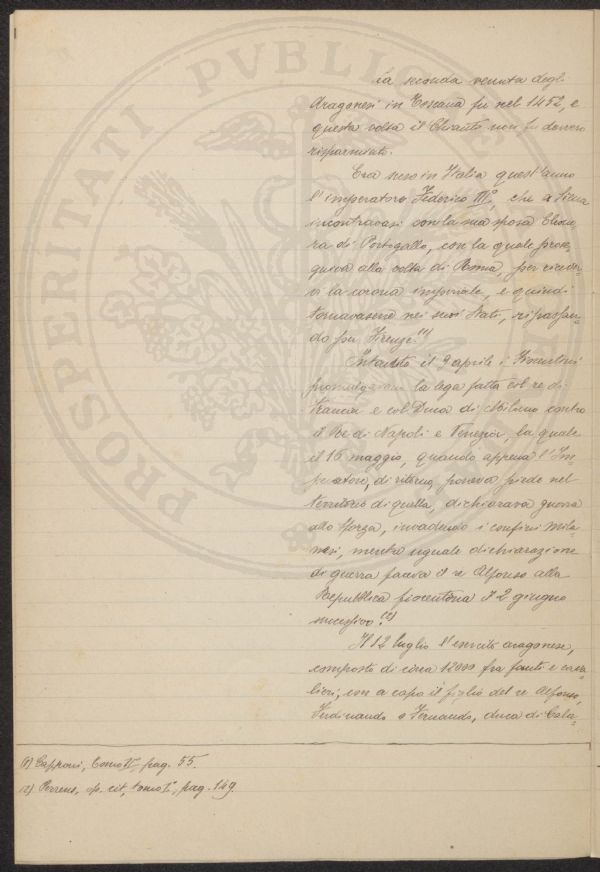 PROSPERITATI PVBLICAE
La seconda venuta degli
Aragonesi in Toscana fu nel 1452, e
questa volta il Chianti non fu davvero
risparmiato.
Era sceso in Italia quest'anno
l'imperatore Federico IIIº, che a Siena
incontravasi con la sua sposa Eleono
ra di Portogallo, con la quale prose
guiva alla volta di Roma, per ricever
vi la corona imperiale, e quindi
tornavasene nei suoi Stati, ripassan
do per Firenze.(1)
Intanto il 9 aprile i Fiorentini
la lega fatta col re di
Francia e col Duca di Milano contro
il Re di Napoli e Venezia, la quale
il 16 maggio, quando appena l'Im
peratore, di ritorno, poneva piede nel
territorio di quella, dichiarava guerra
allo Sforza, invadendo i confini mila-
nesi, mentre uguale dichiarazione
di guerra faceva il re Alfonso alla
Repubblica fiorentina il 2 giugno
successivo.(2)
Il 12 luglio l'esercito aragonese,
composto di circa 12000 fra fanti e cava
lieri, con a capo il figlio del re Alfonso,
Ferdinando o Fernando, duca di Cala-
(1) Capponi, Tomo IIº, pag. 55.
(2) Perrens, op. cit, tomo Iº, pag. 149.